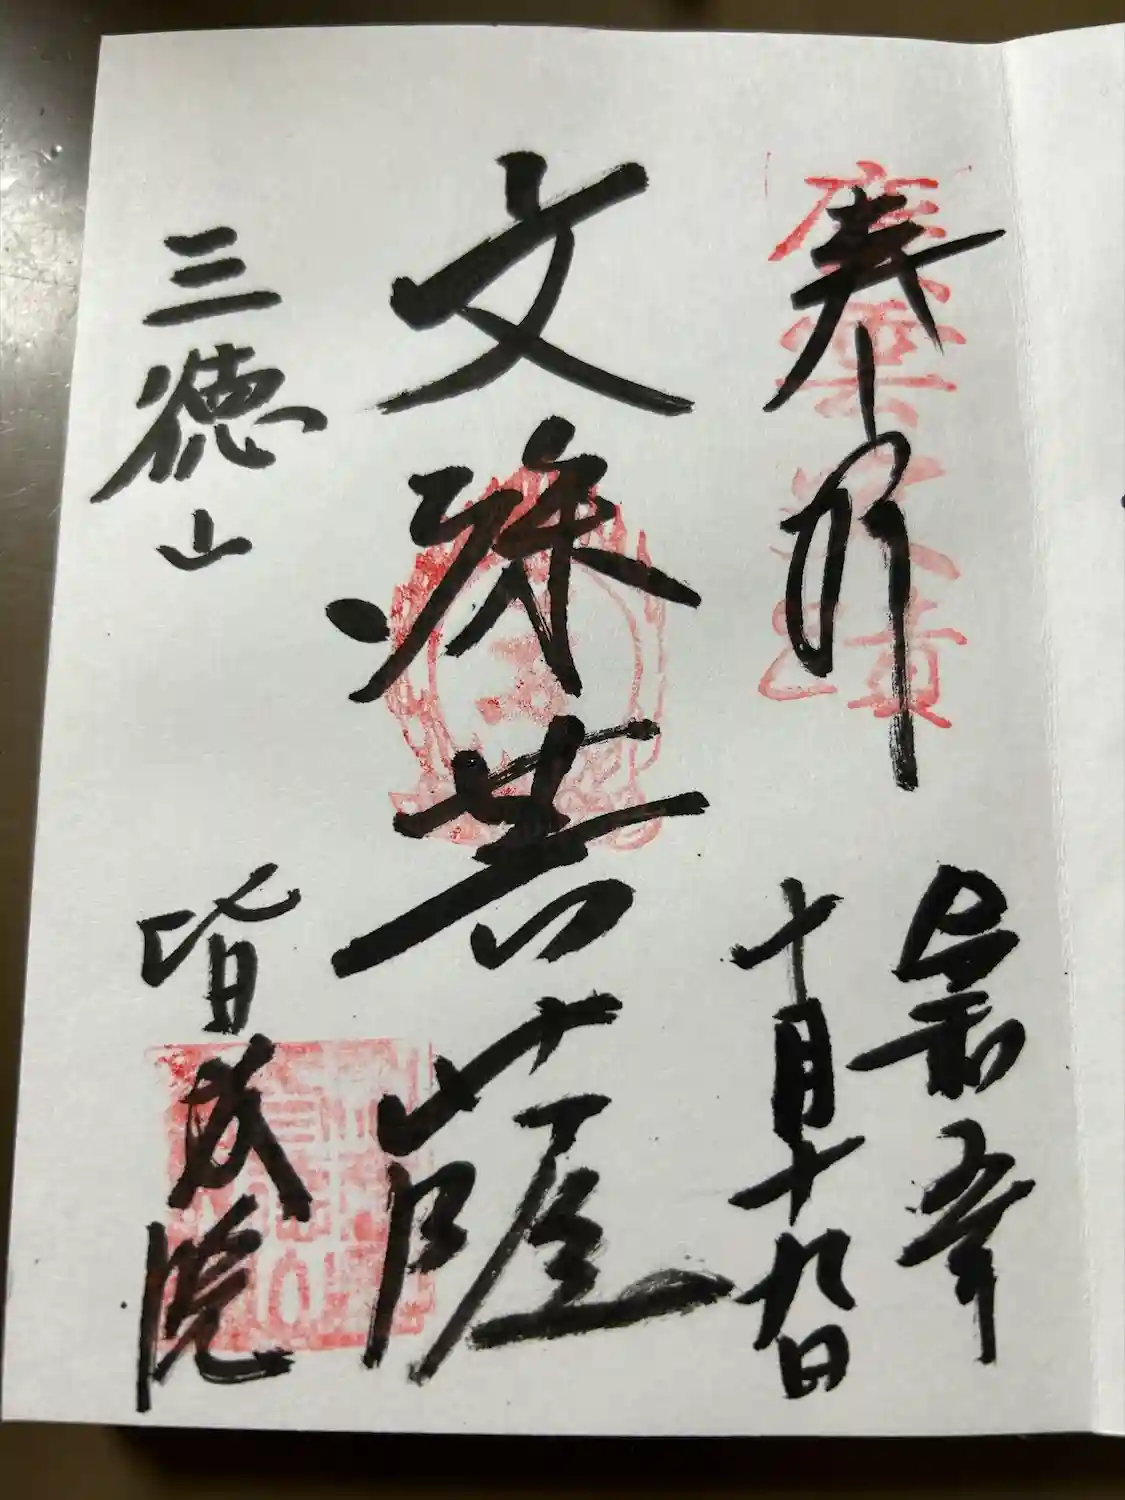 奉拝
令和五年
十月十九日
文殊菩薩
三徳山
皆成院